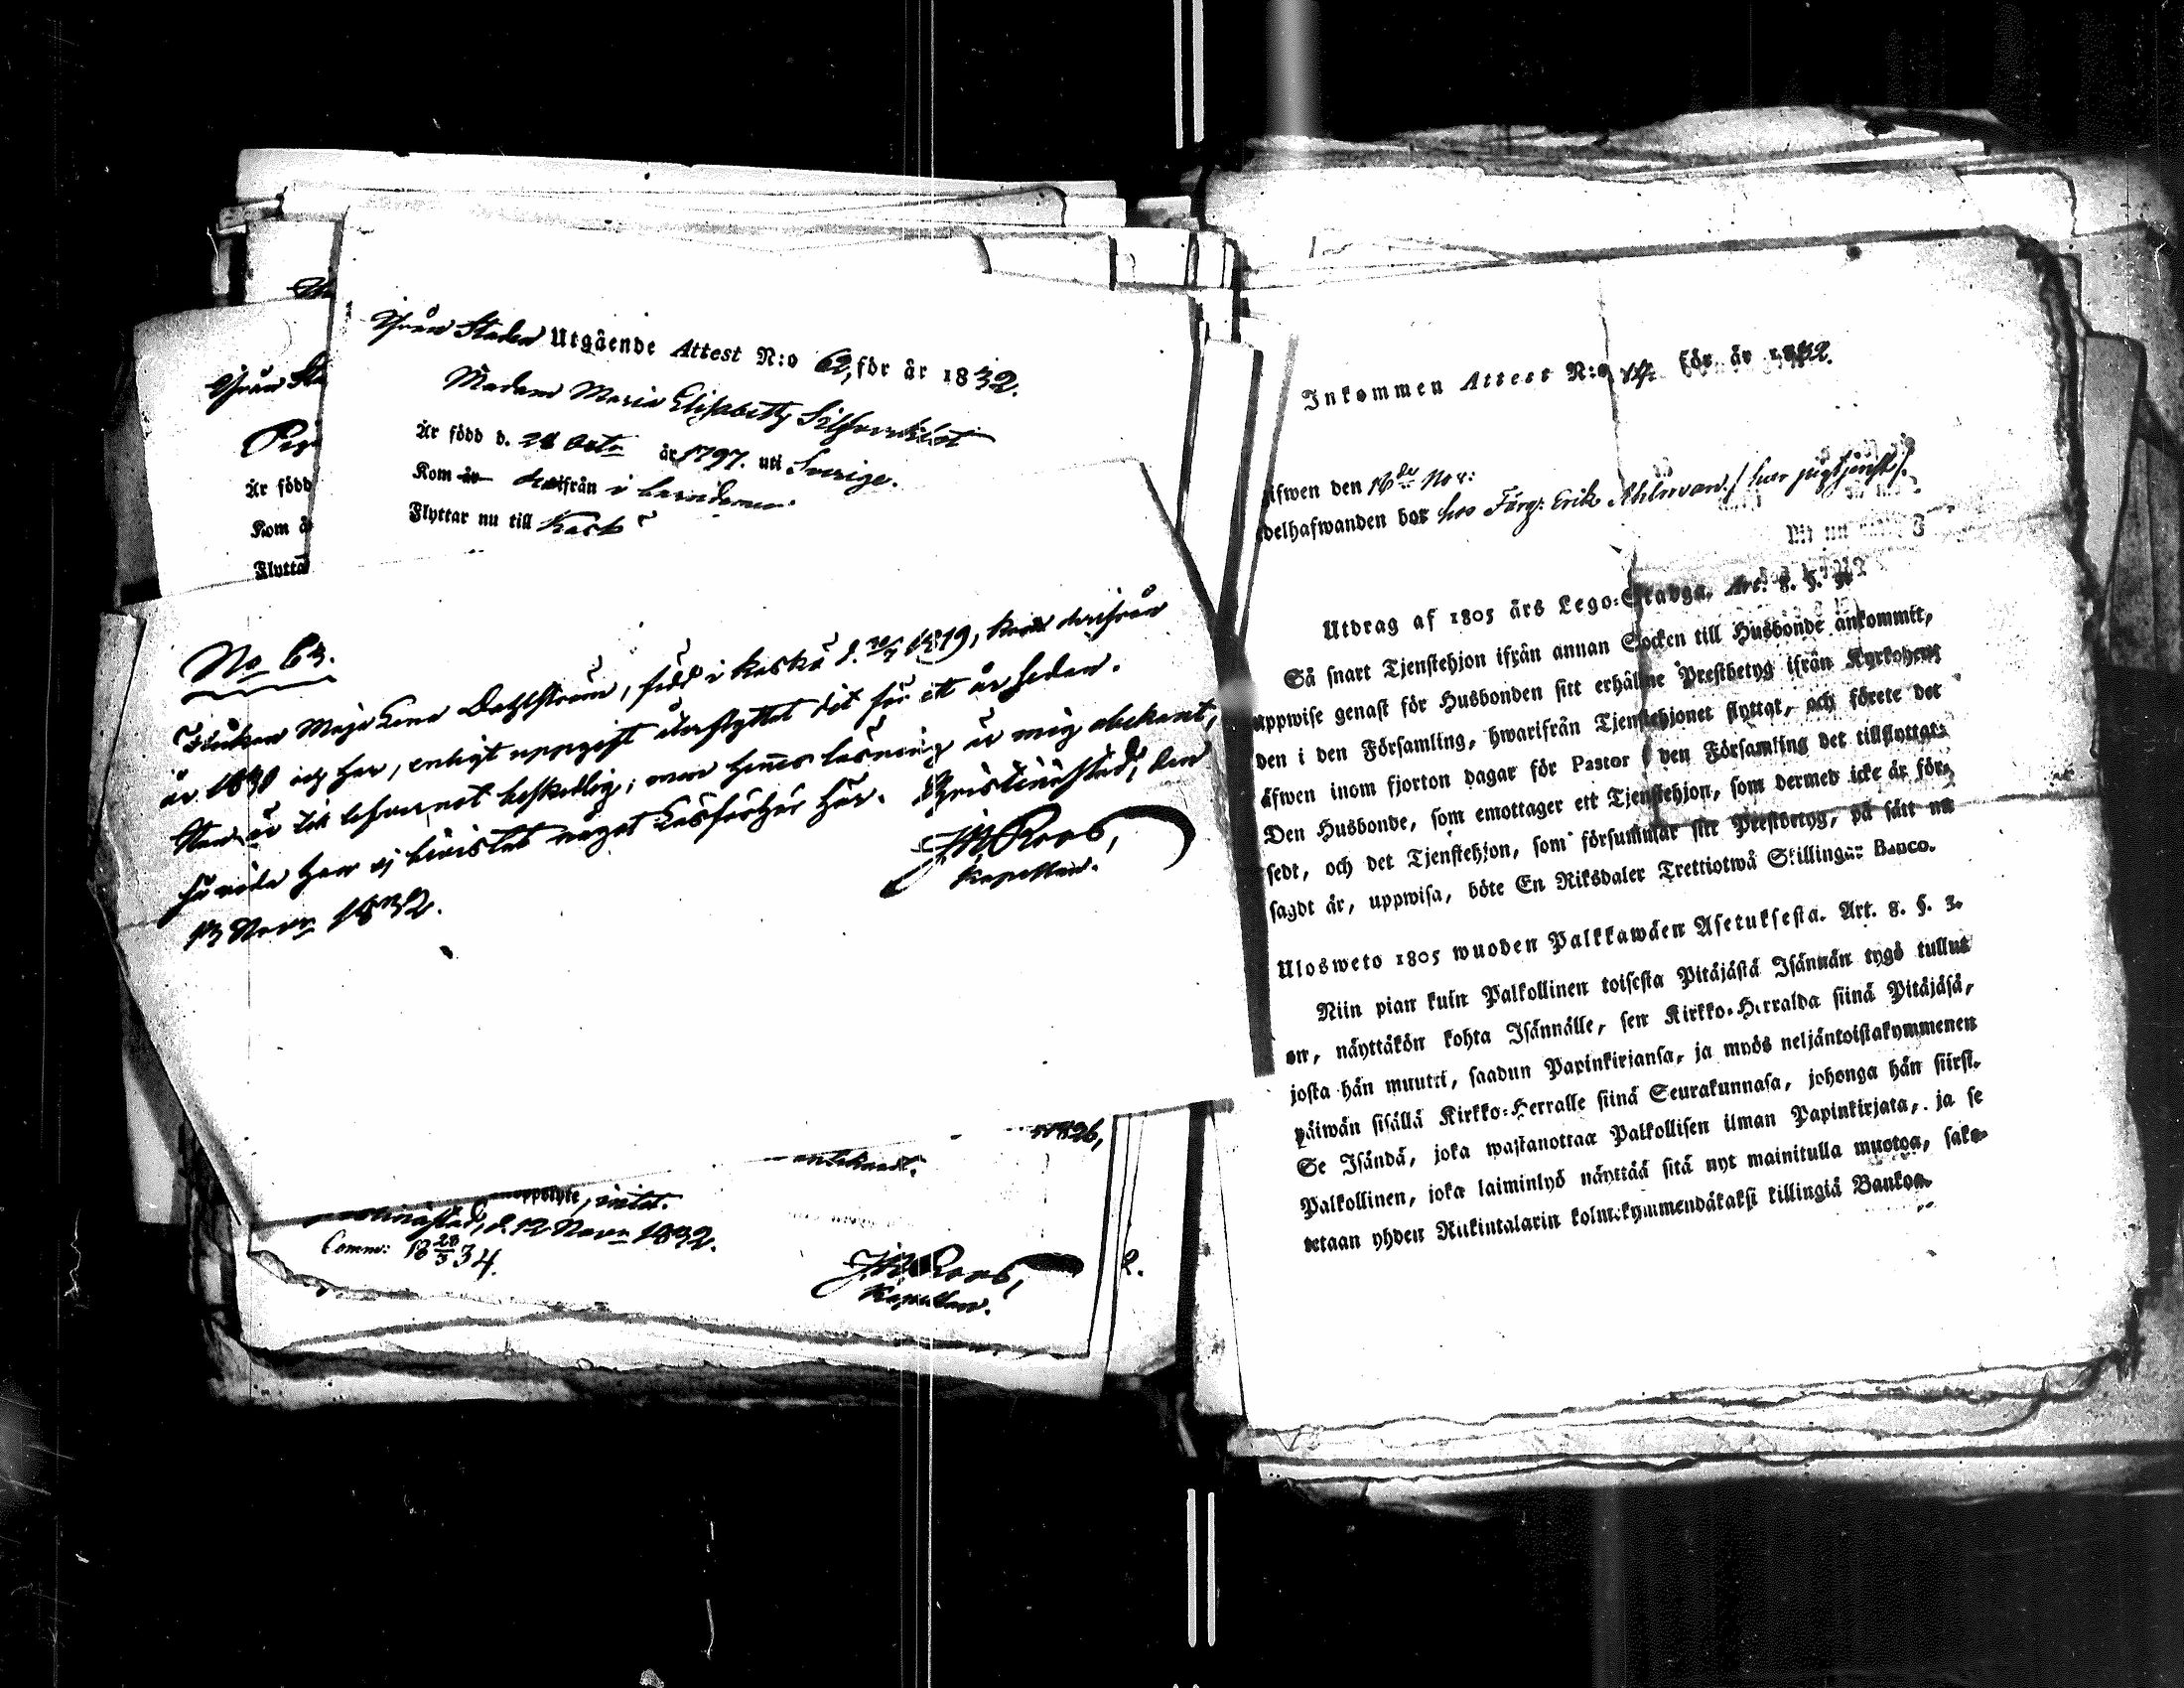 Från Sta
Pig
Är född
Kom å
Flytta
Från Staden Utgående Attest N:o 62, för år 1832.
Madam Maria Elisabeth
Är född d. 28 Octr år 1797. uti Sverige.
Kom år ifrån i
Flyttar nu till Kaskö
No 63.
Flickan Maja Lena Dahlström, född i Kaskö d. 1819, kom derifrån
år 1830 och har, enligt uppgift återflyttat dit för ett år sedan.
Hon är till lefvernet beskedlig; men hennes läsning är mig obekant,
huru hon ej bivistat något Läsförhör här. Christinestad, den
13 Novr 1832.
J M Roos,
Kapellan.
1826,
obekant.
d. 12 Novr 1832.
Comm: 18 28/3 34.
J M Roos,
Kapellan.
Inkommen Attest N:o 14. för år 1832.
ifwen den 16de Nov:
delhafwanden bor hos Färg: Erik Ahlman /har pigtjenst/.
Utdrag af 1805 års Lego-Stadga. Art. 8. §. 3.
Så snart Tjenstehjon ifrån annan Socken till Husbonde ankommit,
uppwise genast för Husbonden sitt erhållne Prestbetyg ifrån Kyrkoher-
den i den Församling, hwarifrån Tjenstehjonet flyttat, och förete det
äfwen inom fjorton dagar för Pastor i den Församling det tillflyttat.
Den Husbonde, som emottager ett Tjenstehjon, som dermed icke är för-
sedt, och det Tjenstehjon, som försummar sitt Prestbetyg, på sätt nu
sagdt är, uppwisa, böte En Riksdaler Trettiotwå Skillingar Banco.
Ulosweto 1805 wuoden Palkkawäen Asetuksesta. Art. 8. §. 3.
Niin pian kuin Palkollinen toisesta Pitäjästä Isännän tygö tullut
on, näyttäkön kohta Isännälle, sen Kirkko-Herralda siinä Pitäjäsä,
josta hän muutti, saadun Papinkirjansa, ja myös neljäntoistakymmenen
päiwän sisällä Kirkko-Herralle siinä Seurakunnasa, johonga hän siirsi.
Se Isändä, joka wastanottaa Palkollisen ilman Papinkirjata, ja se
Palkollinen, joka laiminlyö näyttää sitä nyt mainitulla muotoa, sako-
tetaan yhden Riikintalarin kolmekymmendäkaksi killingiä Bankoa.